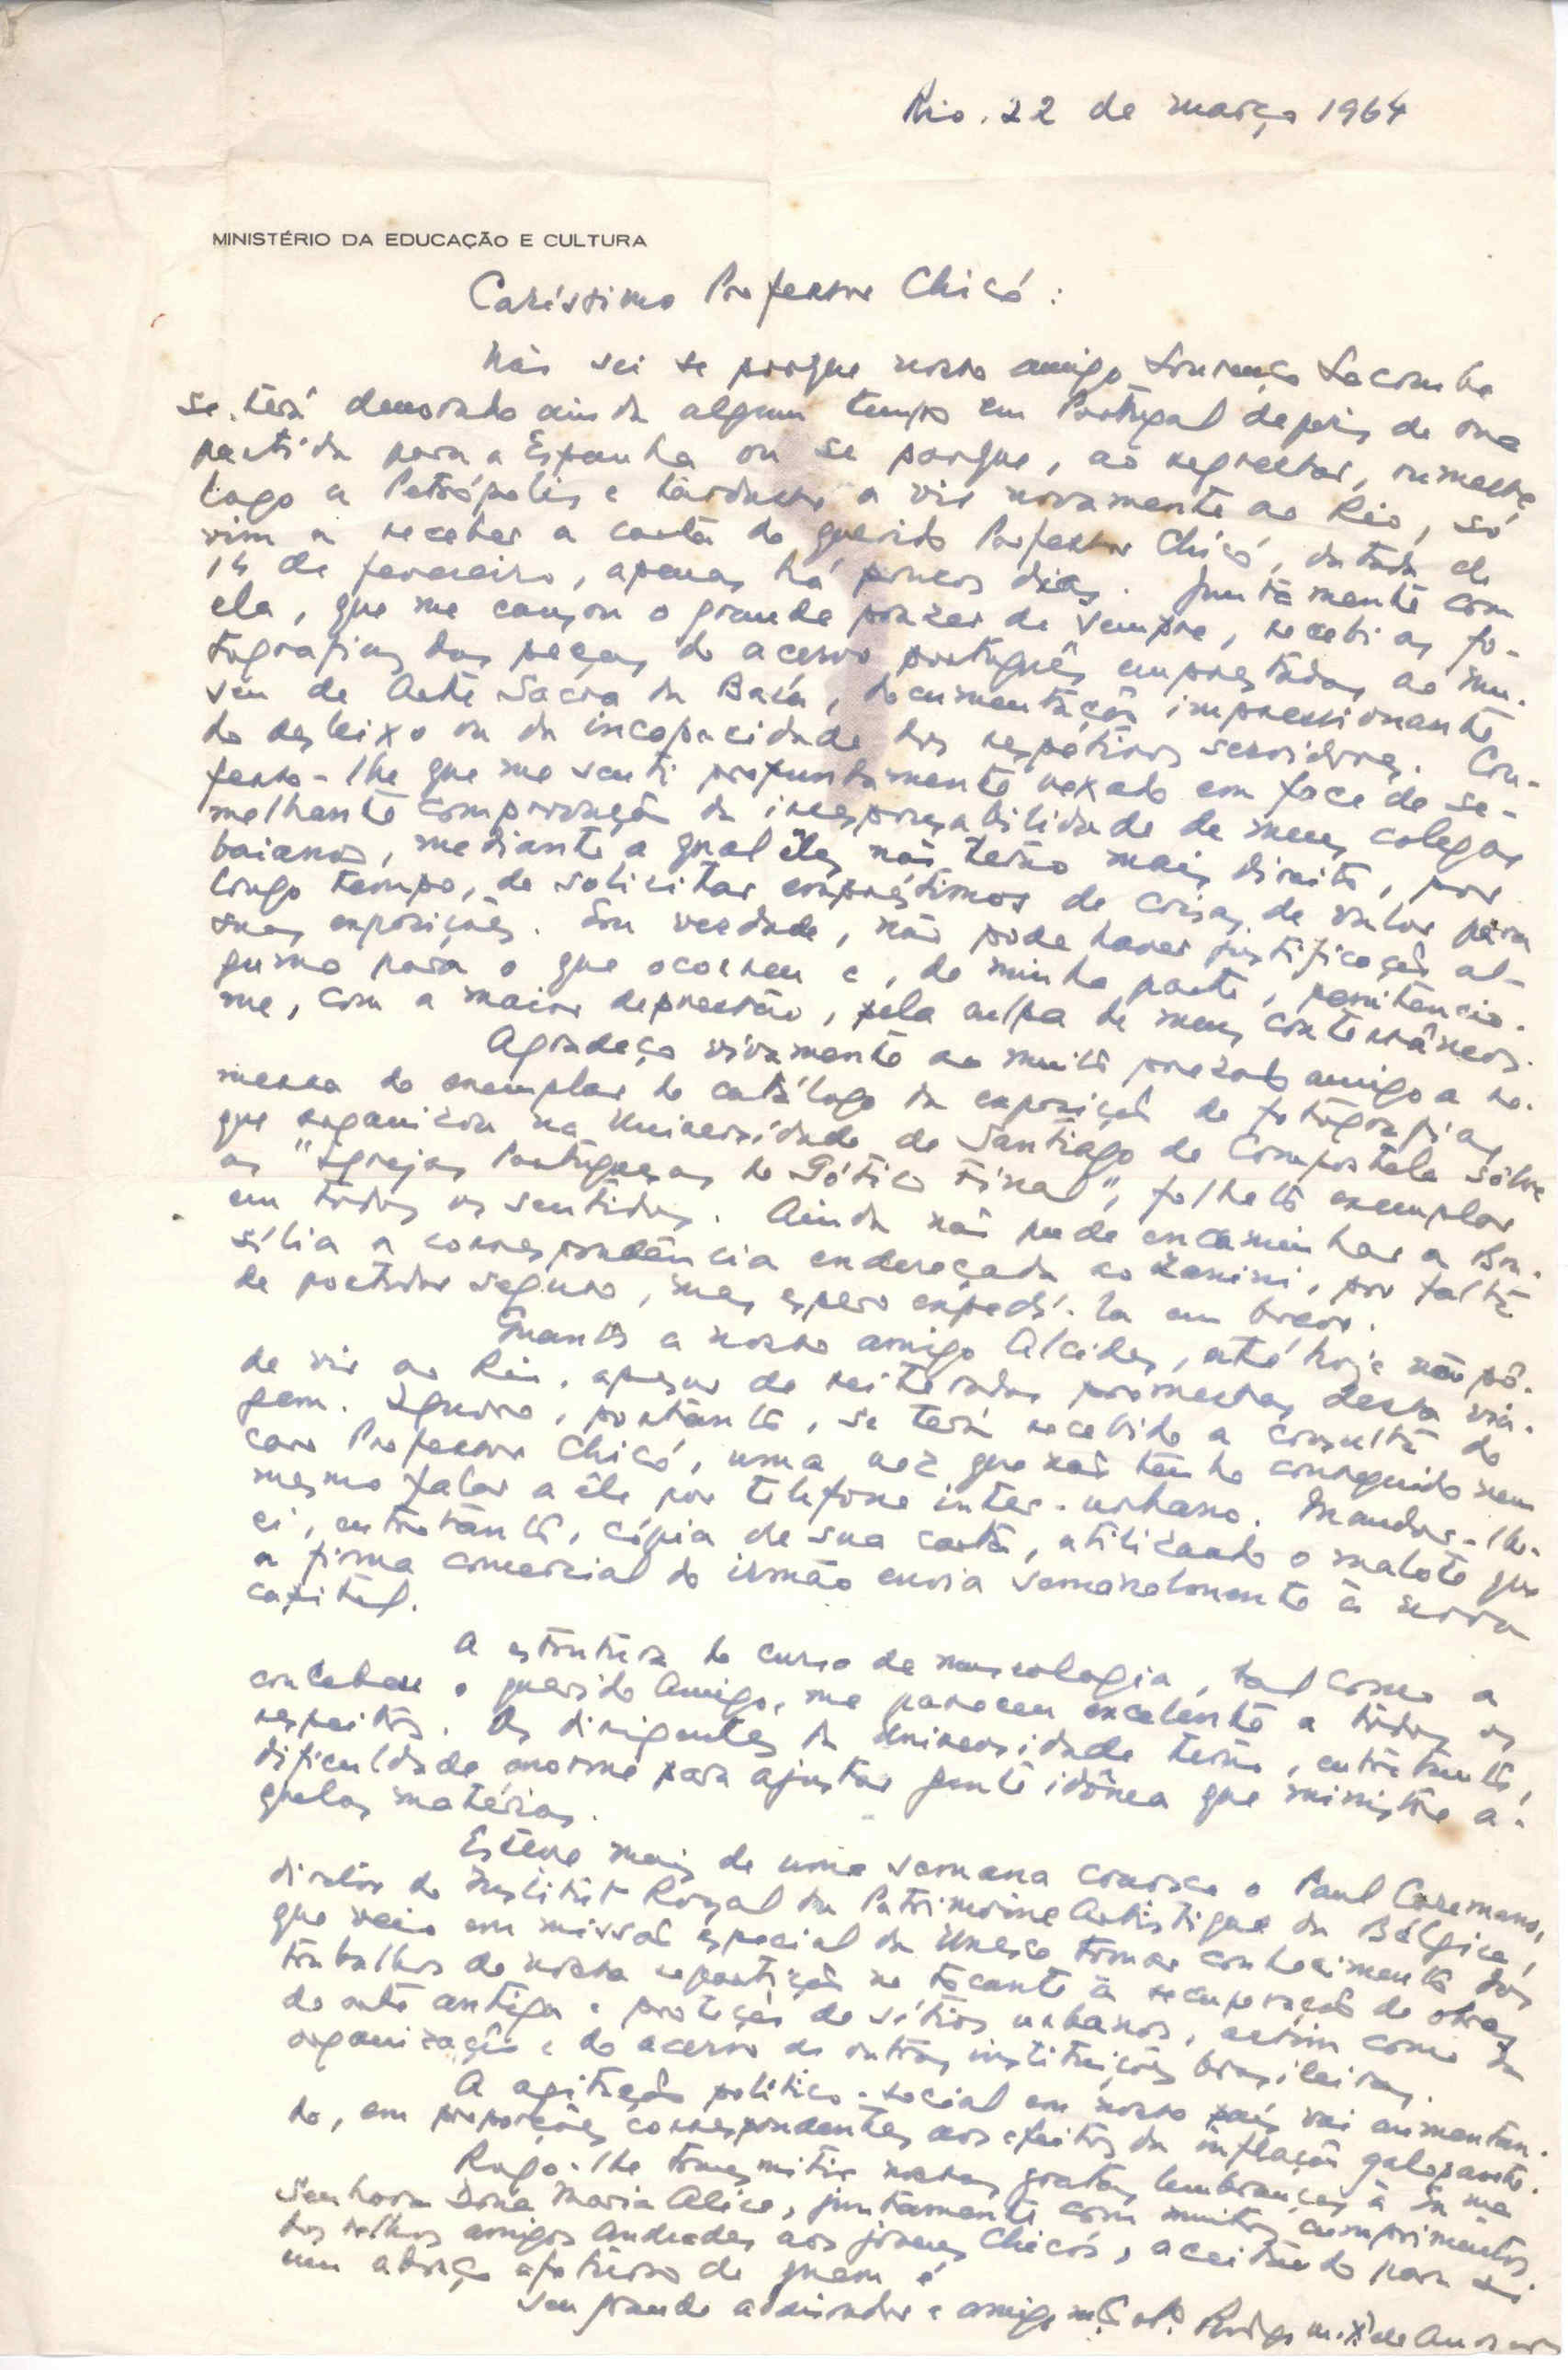 Rio. 22 de março 1964
MINISTÉRIO DA EDUCAÇÃO E CULTURA
Caríssimo Professor Chicó:
Não sei se porque nosso amigo Lourenço Lacombe
se terá demorado ainda algum tempo em Portugal depois de sua
partida para a Espanha ou se porque, ao regressar, rumasse
logo a Petrópolis e tardasse a vir novamente ao Rio, só
vim a receber a carta do querido Professor Chicó, datada de
14 de fevereiro, apenas há poucos dias. Juntamente com
ela, que me causou o grande prazer de sempre, recebi as fo-
tografias das peças do acervo português emprestadas ao Mu-
seu de Arte Sacra da Baía, documentação impressionante
do desleixo ou da incapacidade dos respetivos servidores. Con-
fesso-lhe que me senti profundamente vexado em face de se-
melhante comprovação da irresponsabilidade de meus colegas
baianos, mediante a qual êles não terão mais direito, por
longo tempo, de solicitar empréstimos de coisas de valor para
suas exposições. Em verdade, não pode haver justificação al-
guma para o que ocorreu e, de minha parte, penitencio-
me, com a maior depressão, pela culpa de meus conterrâneos.
Agradeço vivamente ao muito prezado amigo a re-
messa do exemplar do catálogo da exposição de fotografias
que organizou na Universidade de Santiago de Compostela sôbre
as "Igrejas Portuguesas do Gótico Final", folheto exemplar
em todos os sentidos. Ainda não pude encaminhar a Bra-
sília a correspondência endereçada ao Zanini, por falta
de portador seguro, mas espero expedí-la em breve.
Quanto a nosso amigo Alcides, até hoje não pô-
de vir ao Rio, apesar de reiteradas promessas dessa via-
gem. Ignoro, portanto, se terá recebido a consulta do
caro Professor Chicó, uma vez que não tenho conseguido nem
mesmo falar a êle por telefone inter-urbano. Mandar-lhe-
ei, entretanto, cópia de sua carta, utilizando o malote que
a firma comercial do irmão envia semanalmente à nova
capital.
A estrutura do curso de museologia, tal como a
concebeu o querido Amigo, me pareceu excelente a todos os
respeitos. Os dirigentes da Universidade terão, entretanto,
dificuldade enorme para ajustar gente idônea que ministre a-
quelas matérias.
Esteve mais de uma semana conosco o Paul Coremans,
diretor do Institut Royal du Patrimoine Artistique da Bélgica,
que veio em missão especial da Unesco tomar conhecimento dos
trabalhos de nossa repartição no tocante à recuperação de obras
de arte antiga e proteção de sítios urbanos, assim como da
organização e do acervo de outras instituições brasileiras.
A agitação político-social em nosso país vai aumentan-
do, em proporções correspondentes aos efeitos da inflação galopante.
Rogo-lhe transmitir nossas gratas lembranças à
Senhora Dona Maria Alice, juntamente com muitos cumprimentos
dos velhos amigos Andrades aos jovens Chicós, aceitando para si
um abraço afetuoso de quem é
seu grande admirador e amigo Rodrigo M. F. de Andrade